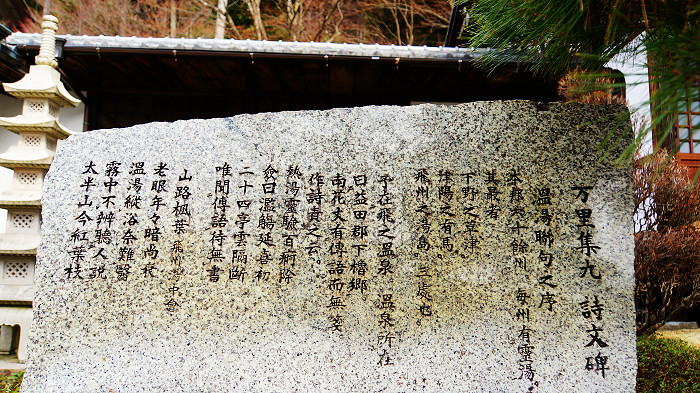 万里集九 詩文碑
温湯聯句之序
本邦六十餘州 每州有靈湯。
其最者
下野之草津
津陽之有馬。
飛州之湯島 三處也。
予在飛之温泉 温泉所在
曰益田郡下櫓郷
南花丈有傳語而無箋
作詩責之云。
熱湯靈驗百痾除
僉曰濫觴延喜初
二十四亭雲隔斷
唯聞傳語待無書
山路楓葉 飛州湯中
老眼年々暗尚
温湯縱浴奈難醫
霧中不辨聽人説
太半山今紅葉枝